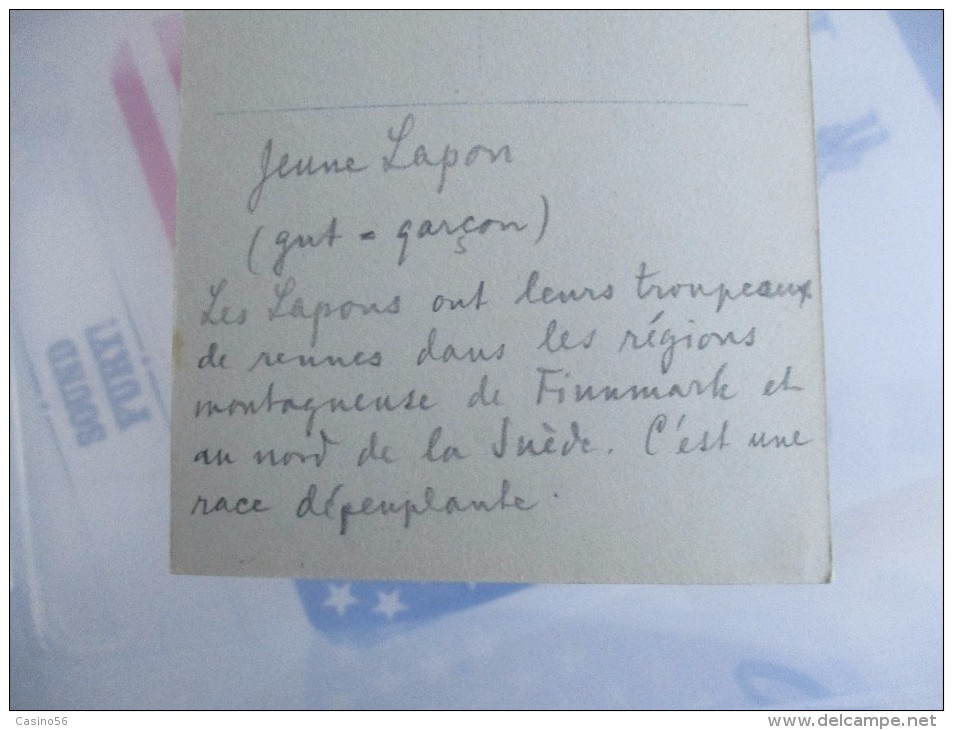 Jeune Lapon
(gut = garçon)
Les Lapons ont leurs troupeaux
de rennes dans les régions
montagneuse de Finnmark et
au nord de la Suède. C'est une
race dépeuplante.
SOUND
FURY!
Casino56
www.delcampe.net